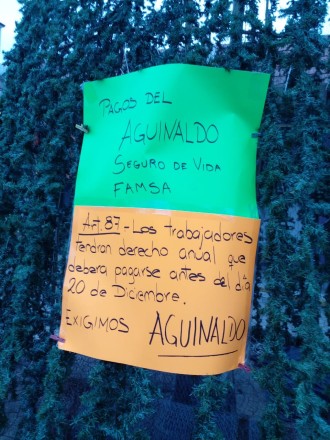 PAGOS DEL
AGUINALDO
SEGURO DE VIDA
FAMSA
Art. 87 - Los trabajadores
tendran derecho anual que
debera pagarse antes del día
20 de Diciembre.
EXIGIMOS AGUINALDO